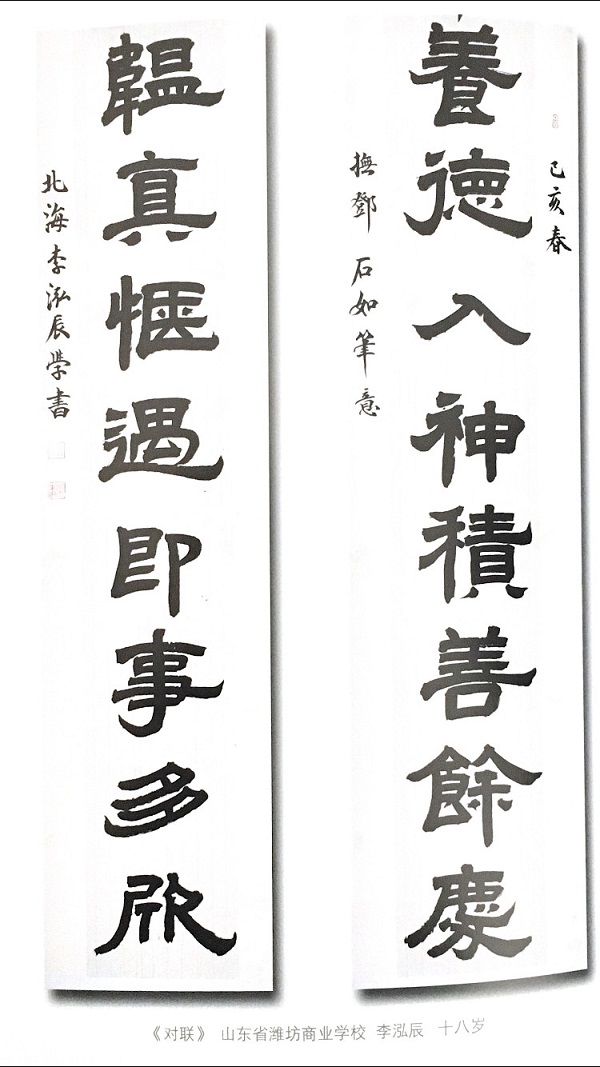 己亥春
養德入神積善餘慶
撫鄧石如筆意
韞真愜遇即事多欣
北海李泓辰學書
《对联》 山东省潍坊商业学校 李泓辰 十八岁